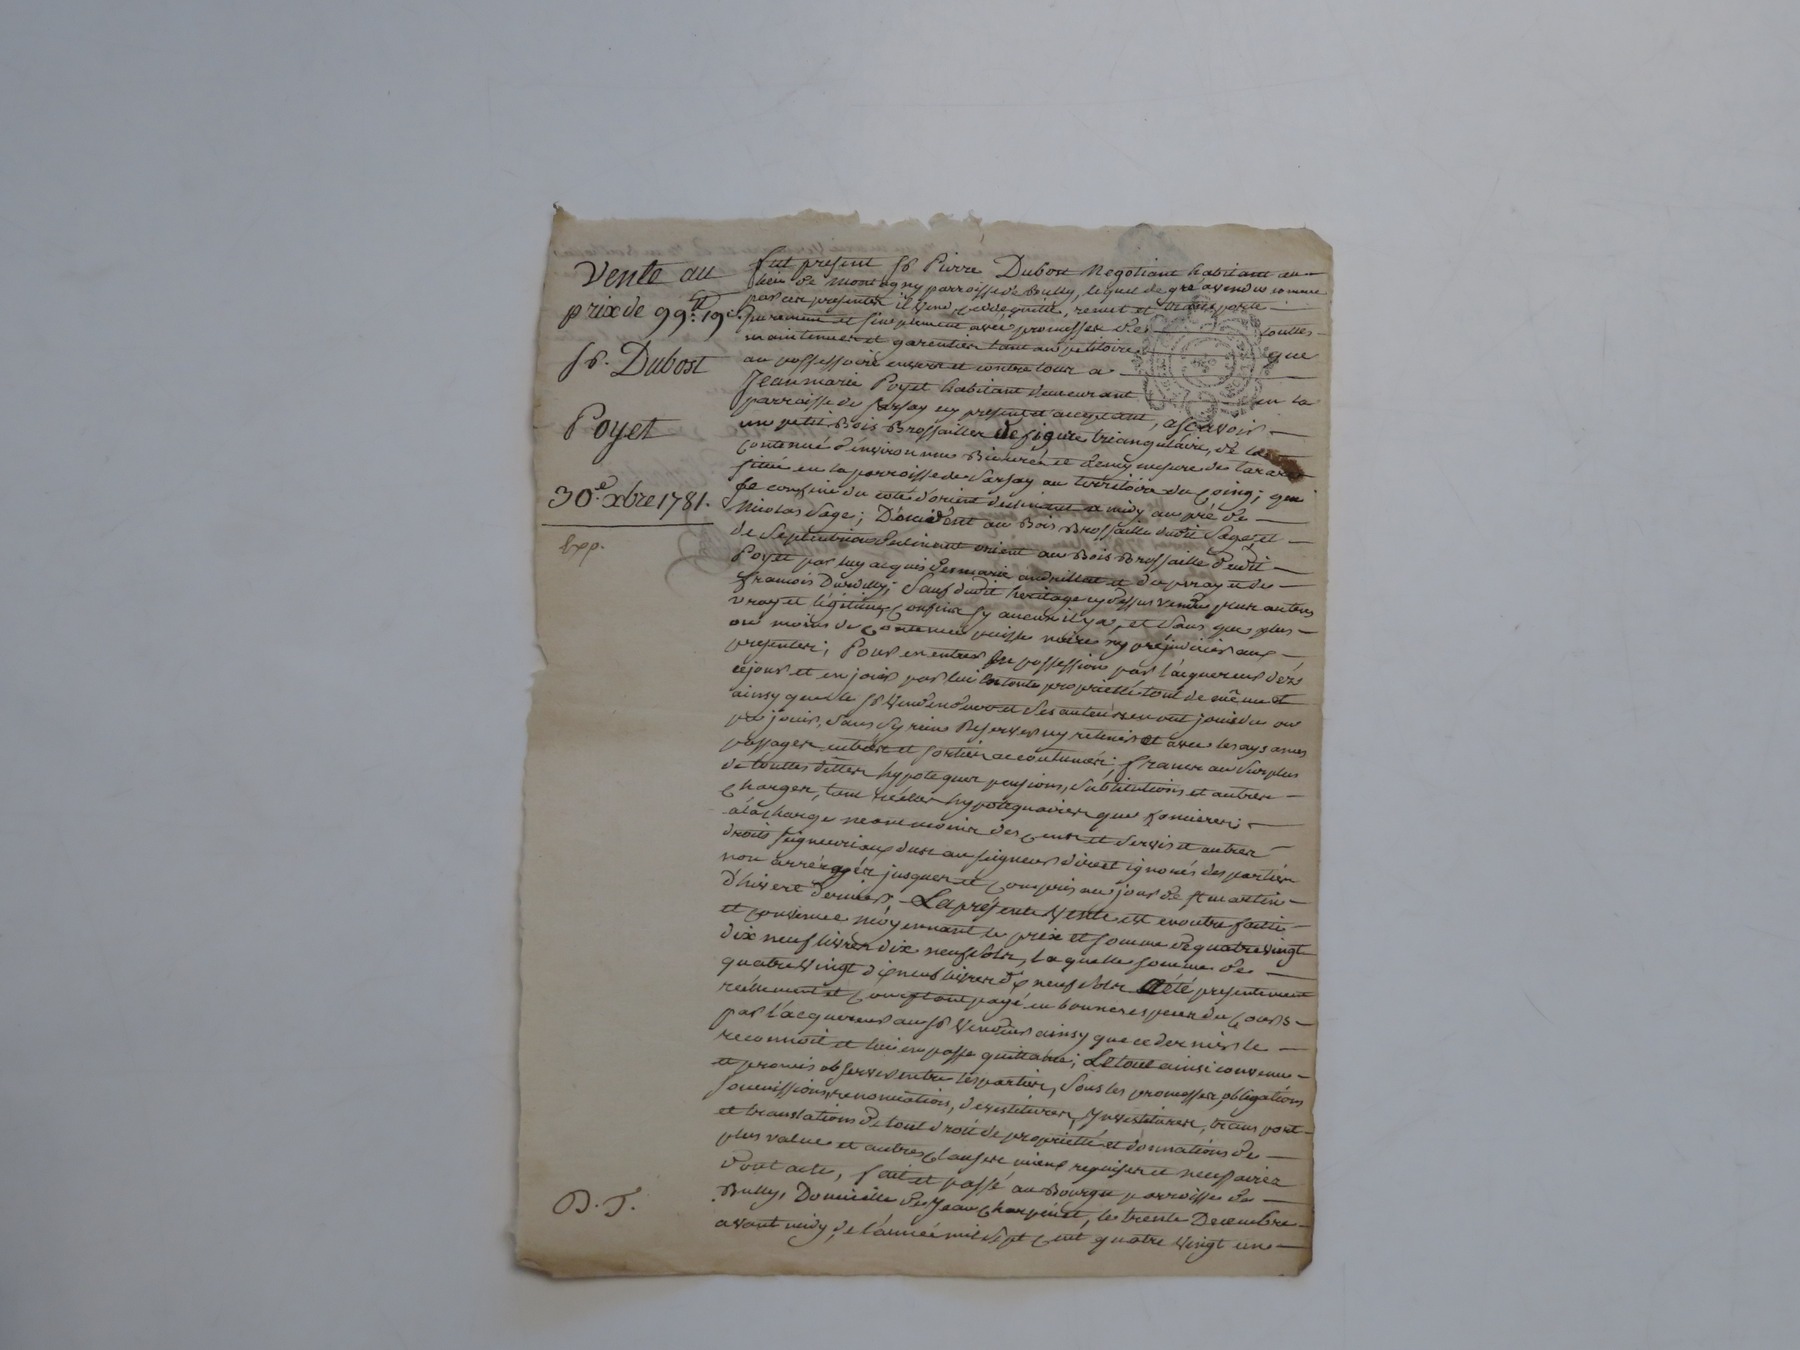 Vente au
prix de 99ᵗᵗ: 19ˢ
Sr. Dubost
Poyet
30.e xbre 1781.
Exp.
fut present Sr Pierre Dubost Negotiant habitant au
lieu de Montagny parroisse de Bully, lequel de gré a vendu comme
par ces presentes il vend, cedde, quitte, remet et transporte
purement et simplement avec promesses de toutes
maintenues et garenties tant au petitoire que
au possessoire envers et contre tous a
Jean marie Poyet habitant demeurant en la
parroisse de Sarsay icy present et acceptant, asçavoir
un petit Bois Brossailles de figure triangulaire, de la
contenue d'environ une Bicherée et demy mesure de tarare
situé en la parroisse de Sarsay au territoire du Coing; qui
se confine du coté d'orient declinant a midy au pré de
Nicolas Sage; D'occident au Bois Brossaille dudit Sage; et
de Septentrion declinant orient au Bois Brossaille dudit
Poyet par luy acquis de marie et du et de
francois; Sauf dudit heritage cy dessus vendu ses autres
vrays et légitimes confins sy aucun il y a, et sans que plus
ou moins de contenue puisse nuire ny préjudicier aux
presentes; Pour en entrer en possession par l'acquereur dèz
cejour et en jouir par lui en toute propriétté tout de même et
ainsy que le Sr Vendeur et ses auteurs en ont joui du ou
pu jouir, sans sy rien Reserver ny retenir et avec les aysances
passages entrées et sorties accoutumées; franc au surplus
de touttes dettes hypoteques pensions, substitutions et autres
charges, tant réelles hypotequaires que foncieres;
àlacharge neantmoins des cens et servis et autres
droits seigneuriaux dus au seigneur direct ignorés des parties
non arréragés jusques et compris au jour de St martin
d'hivert dernier. La présente vente est en outre faitte
et convenue moyennant le prix et somme de quatre vingt
dix neuf livres dix neuf sols, la quelle somme de
quatre vingt dix neuf livres dix neuf sols a été presentement
réellement et comptant payé en bonnes especes du cours
par l'acquereur au Sr Vendeur ainsy que ce dernier le
reconnoit et lui en passe quittance; Le tout ainsi convenu
et promis observer entre les parties, sous les promesses, obligations
soumissions, renonciations, devestitures, Investitures, transport
et translations de tout droit de propriétté et donnations de
plus value et autres clauses mieux requises et necessaires
Dont acte, fait et passé au Bourg et parroisse de
Bully, Domicille de Jean Charpinet, le trente Decembre
avant midy, de l'année mil sept cent quatre vingt un
D. P.